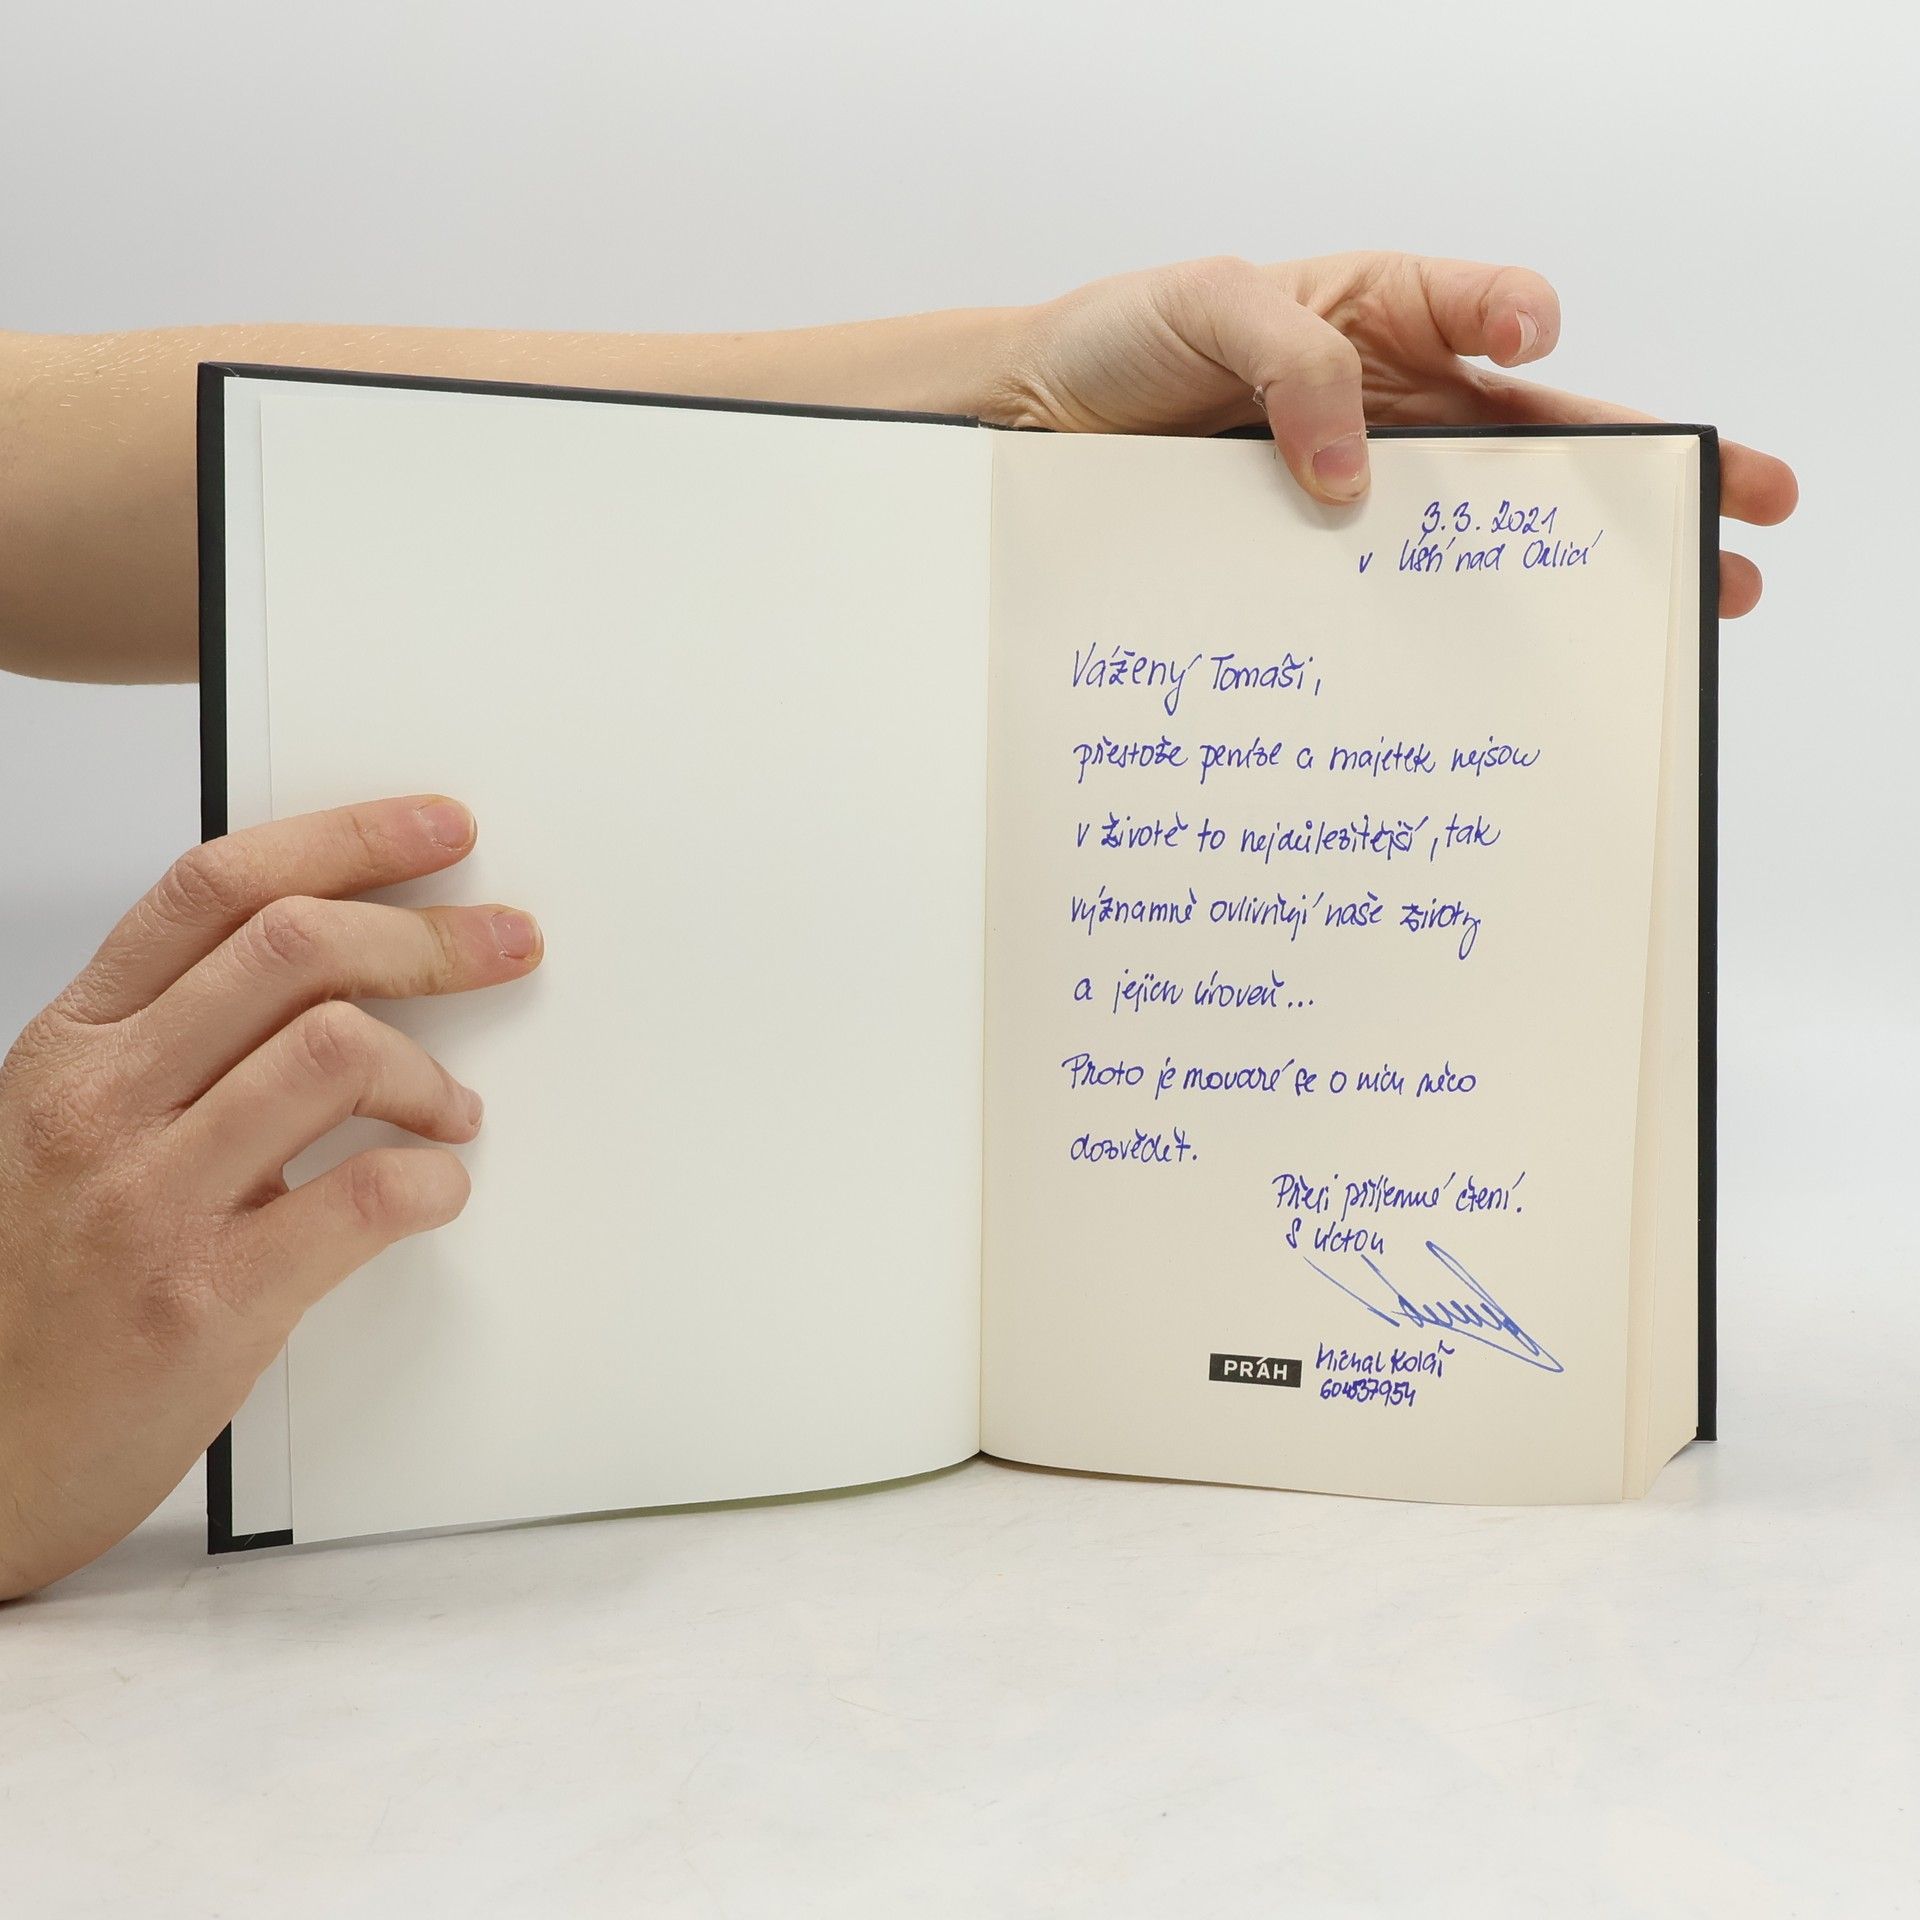 3.3. 2021
v Ústí nad Orlicí
Vážený Tomáši,
přestože peníze a majetek nejsou
v životě to nejdůležitější, tak
významně ovlivňují naše životy
a jejich úroveň...
Proto je moudré se o nich něco
dozvědět.
Přeji příjemné čtení.
S úctou
PRÁH Michal Kolář
604837954